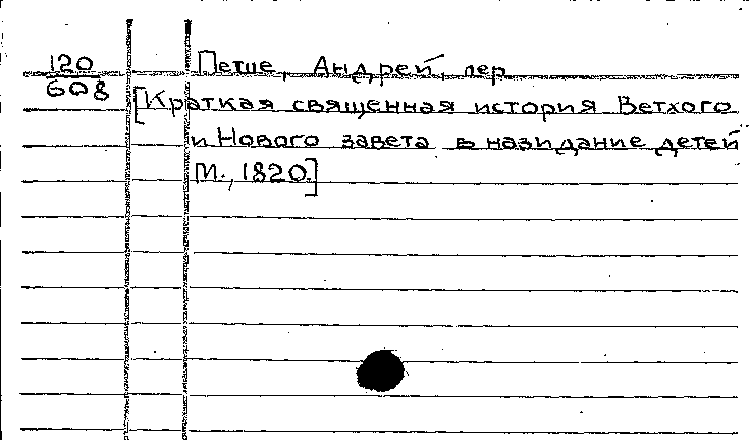 120
608
Петше, Андрей, пер
[Краткая священная история Ветхого
и Нового завета в назидание детей
М., 1820.]